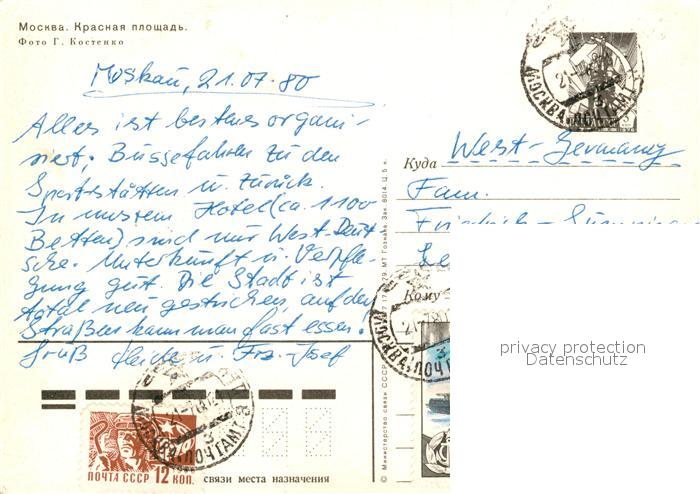 Москва. Красная площадь.
Фото Г. Костенко
Moskau, 21.07.80
Alles ist bestens organi-
siert. Bussefahren zu den
Sportstätten u. zurück.
In unserem Hotel (ca. 1100
Betten) sind nur West-Deut
sche. Unterkunft u. Verpfle-
gung gut. Die Stadt ist
total neu gestrichen, auf den
Straßen kann man fast essen.
Gruß Heide u. Frz.-Josef
Куда West-Germany
Fam.
Friedrich-
Кому
МОСКВА ПОЧТАМТ
МОСКВА ПОЧТАМТ
МОСКВА ПОЧТАМТ
© Министерство связи СССР
МТ Гознака. Зак. 8014. Ц. 5 к.
ПОЧТА СССР 12 КОП.
связи места назначения
privacy protection
Datenschutz